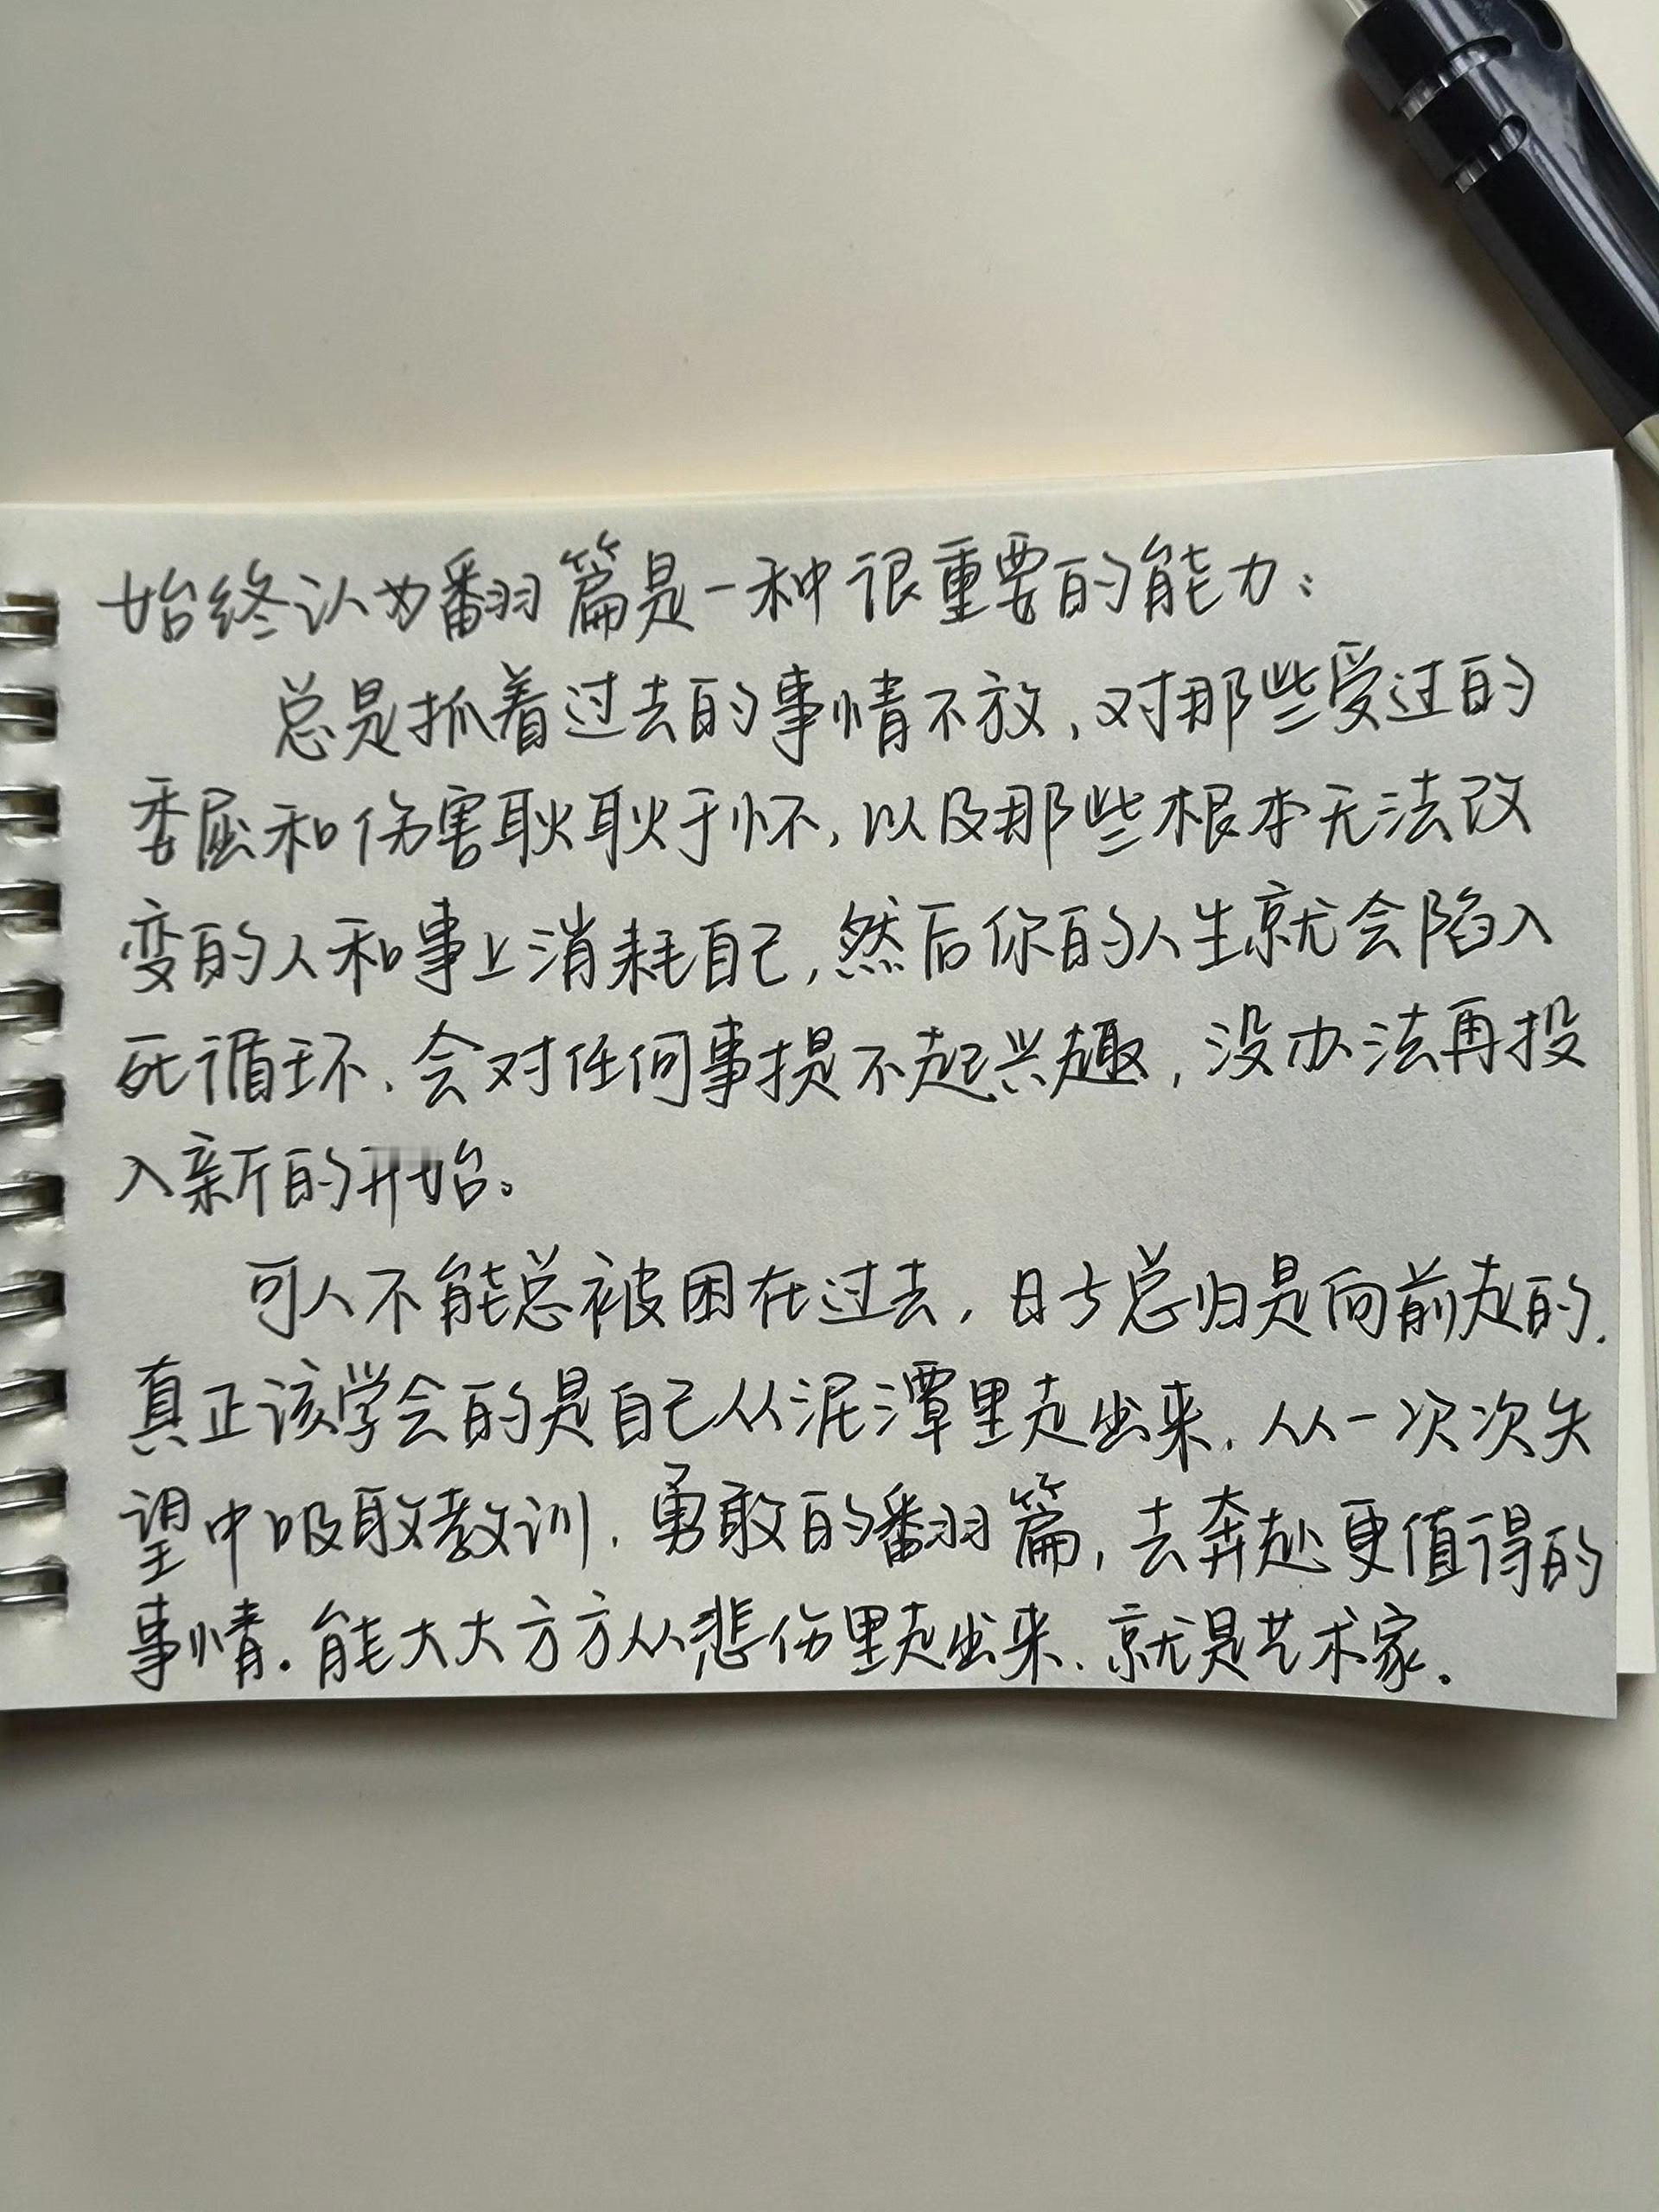 始终认为翻篇是一种很重要的能力：
总是抓着过去的事情不放，对那些受过的
委屈和伤害耿耿于怀，以及那些根本无法改
变的人和事上消耗自己，然后你的人生就会陷入
死循环、会对任何事提不起兴趣，没办法再投
入新的开始。
可人不能总被困在过去，日子总归是向前走的.
真正该学会的是自己从泥潭里走出来.从一次次失
望中吸取教训.勇敢的翻篇，去奔赴更值得的
事情.能大大方方从悲伤里走出来、就是艺术家.